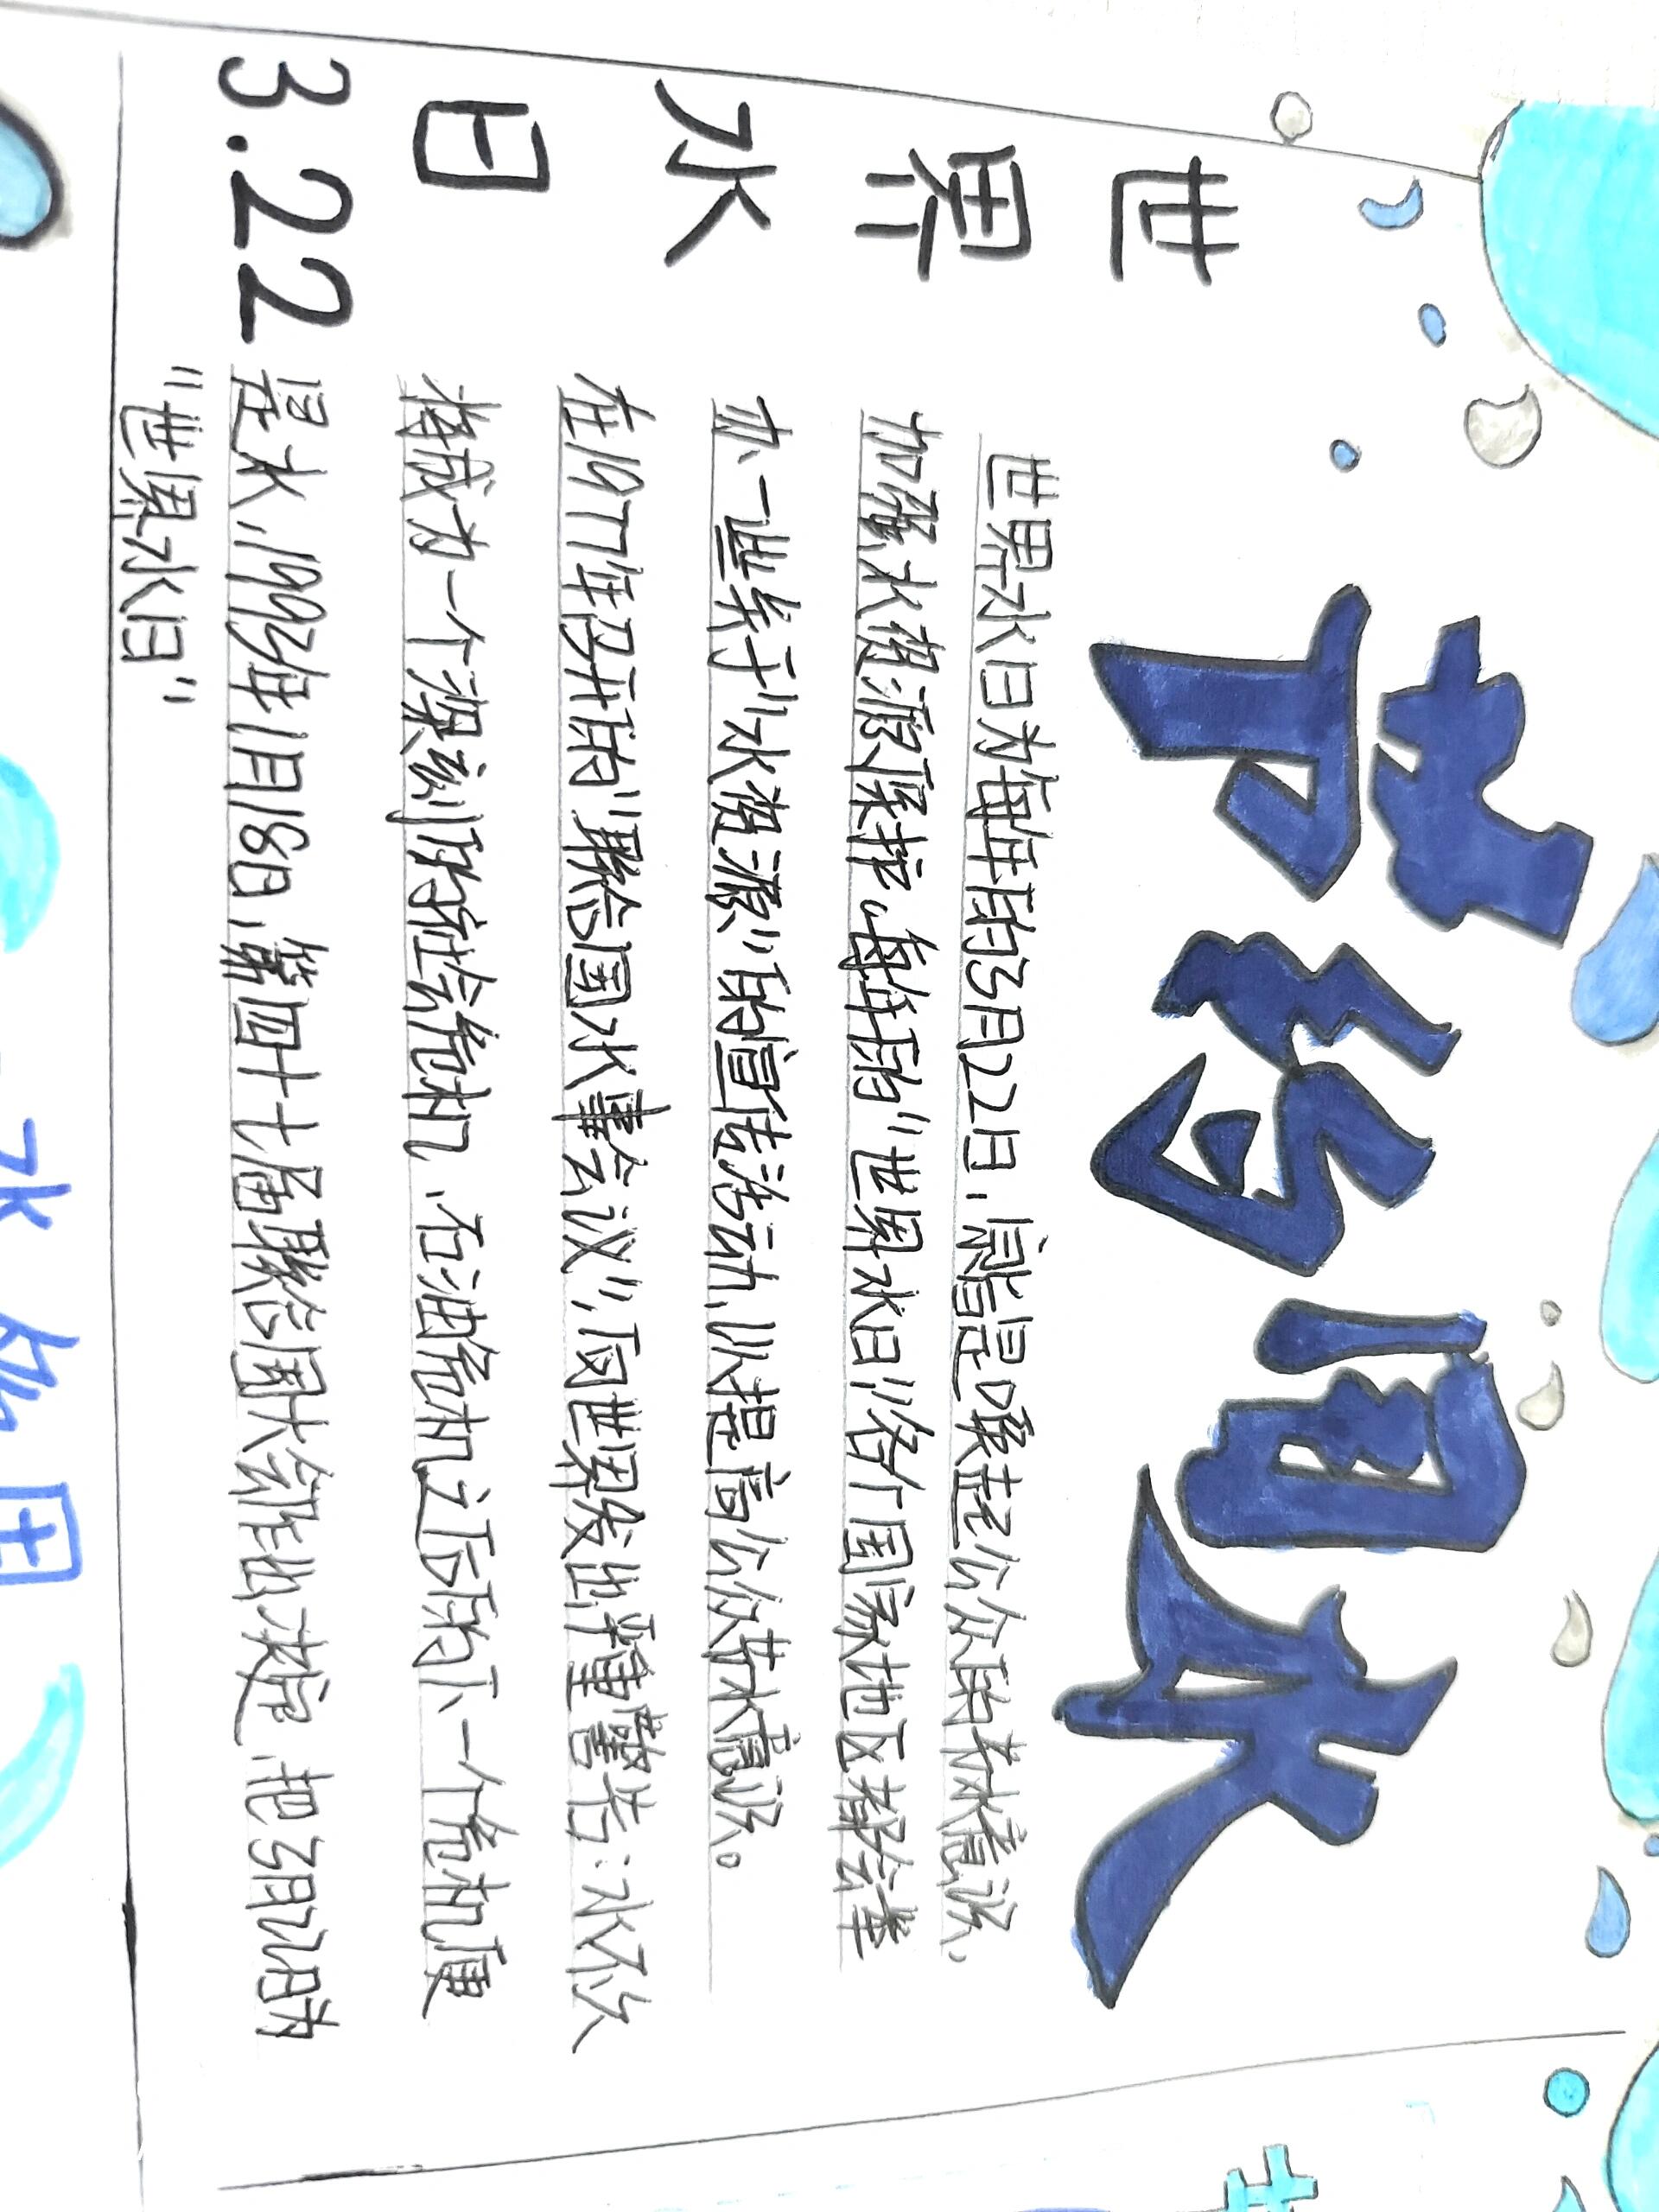 节约用水
世
界
水
日
3.22
世界水日为每年的3月22日,宗旨是唤起公众的节水意识,
加强水资源保护。每年的"世界水日",各个国家地区都会举
办一些关于"水资源"的宣传活动,以提高公众节水意识。
在1977年召开的"联合国水事会议",向世界发出严重警告:水不久
将成为一个深刻的社会危机,石油危机之后的下一个危机便
是水,1993年1月18日,第四十七届联合国大会作出决定,把3月22日为
"世界水日"